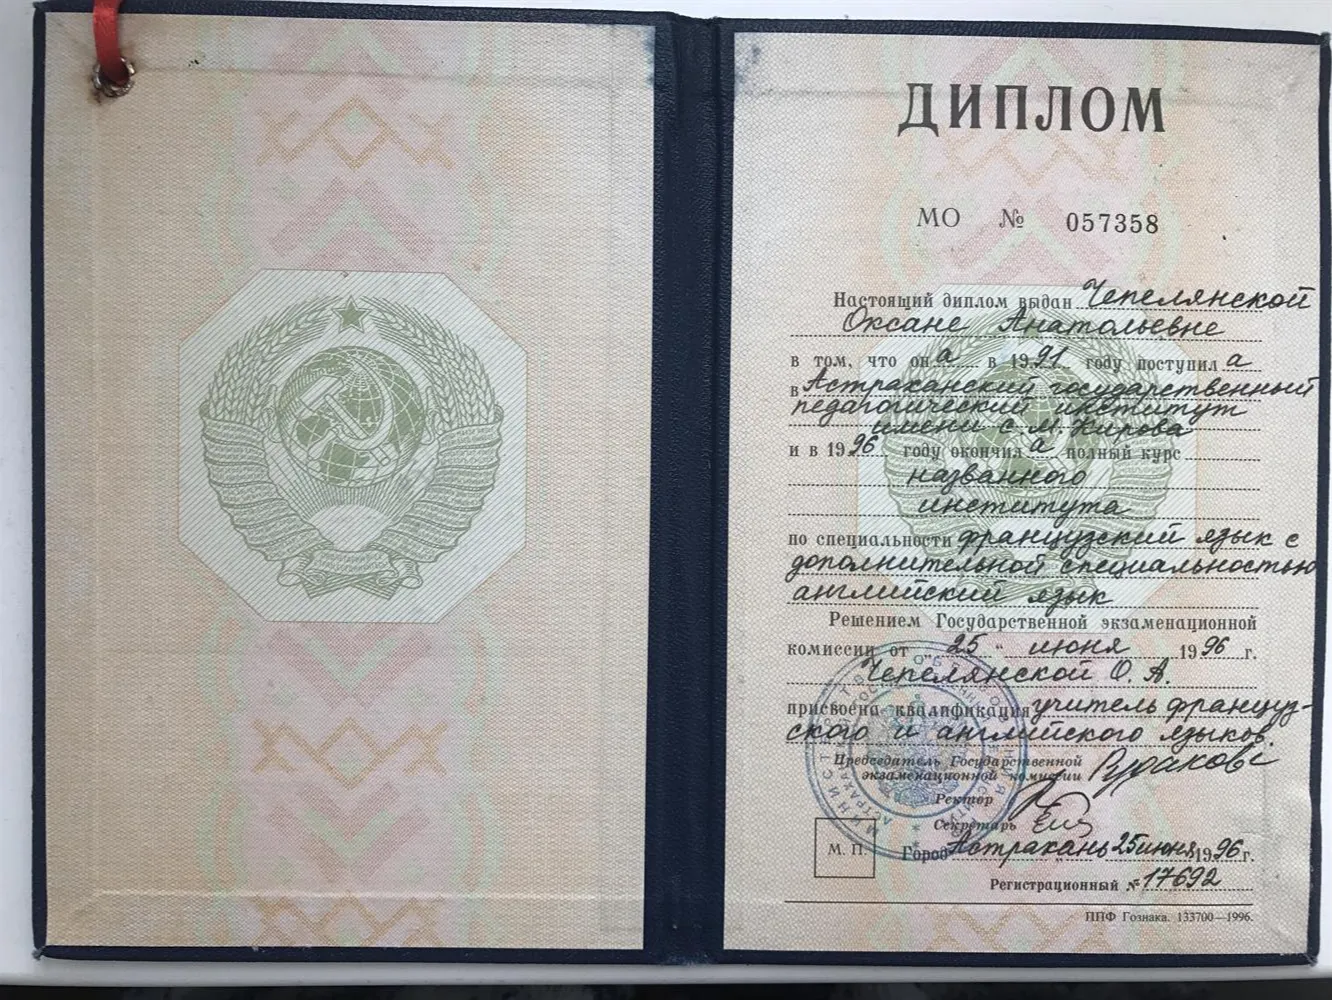 ДИПЛОМ
МО № 057358
Настоящий диплом выдан Чепелянской
Оксане Анатольевне
в том, что она в 1991 году поступила
в Астраханский государственный
педагогический институт
имени С. М. Кирова
и в 1996 году окончила полный курс
названного
института
по специальности французский язык с
дополнительной специальностью
английский язык
Решением Государственной экзаменационной
комиссии от "25" июня 1996 г.
Чепелянской О. А.
присвоена квалификация учитель француз-
ского и английского языков.
Председатель Государственной
экзаменационной комиссии
Ректор
Секретарь
М. П.
Город Астрахань 25 июня 1996 г.
Регистрационный № 17692
ППФ Гознака. 133700—1996.